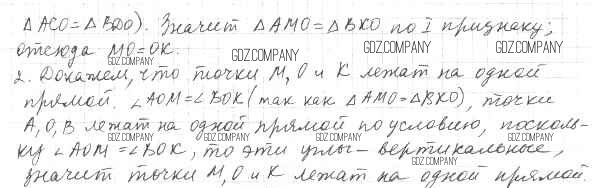 △ACO = △BDO). Значит △AMO = △BKO по I признаку;
отсюда MO = OK.
GDZ.COMPANY GDZ.COMPANY GDZ.COMPANY GDZ.COMPANY
2. Докажем, что точки M, O и K лежат на одной
прямой. ∠AOM = ∠BOK (так как △AMO = △BKO), точки
A, O, B лежат на одной прямой по условию, посколь-
GDZ.COMPANY GDZ.COMPANY GDZ.COMPANY GDZ.COMPANY
ку ∠AOM = ∠BOK, то эти углы – вертикальные,
GDZ.COMPANY
значит точки M, O и K лежат на одной прямой.